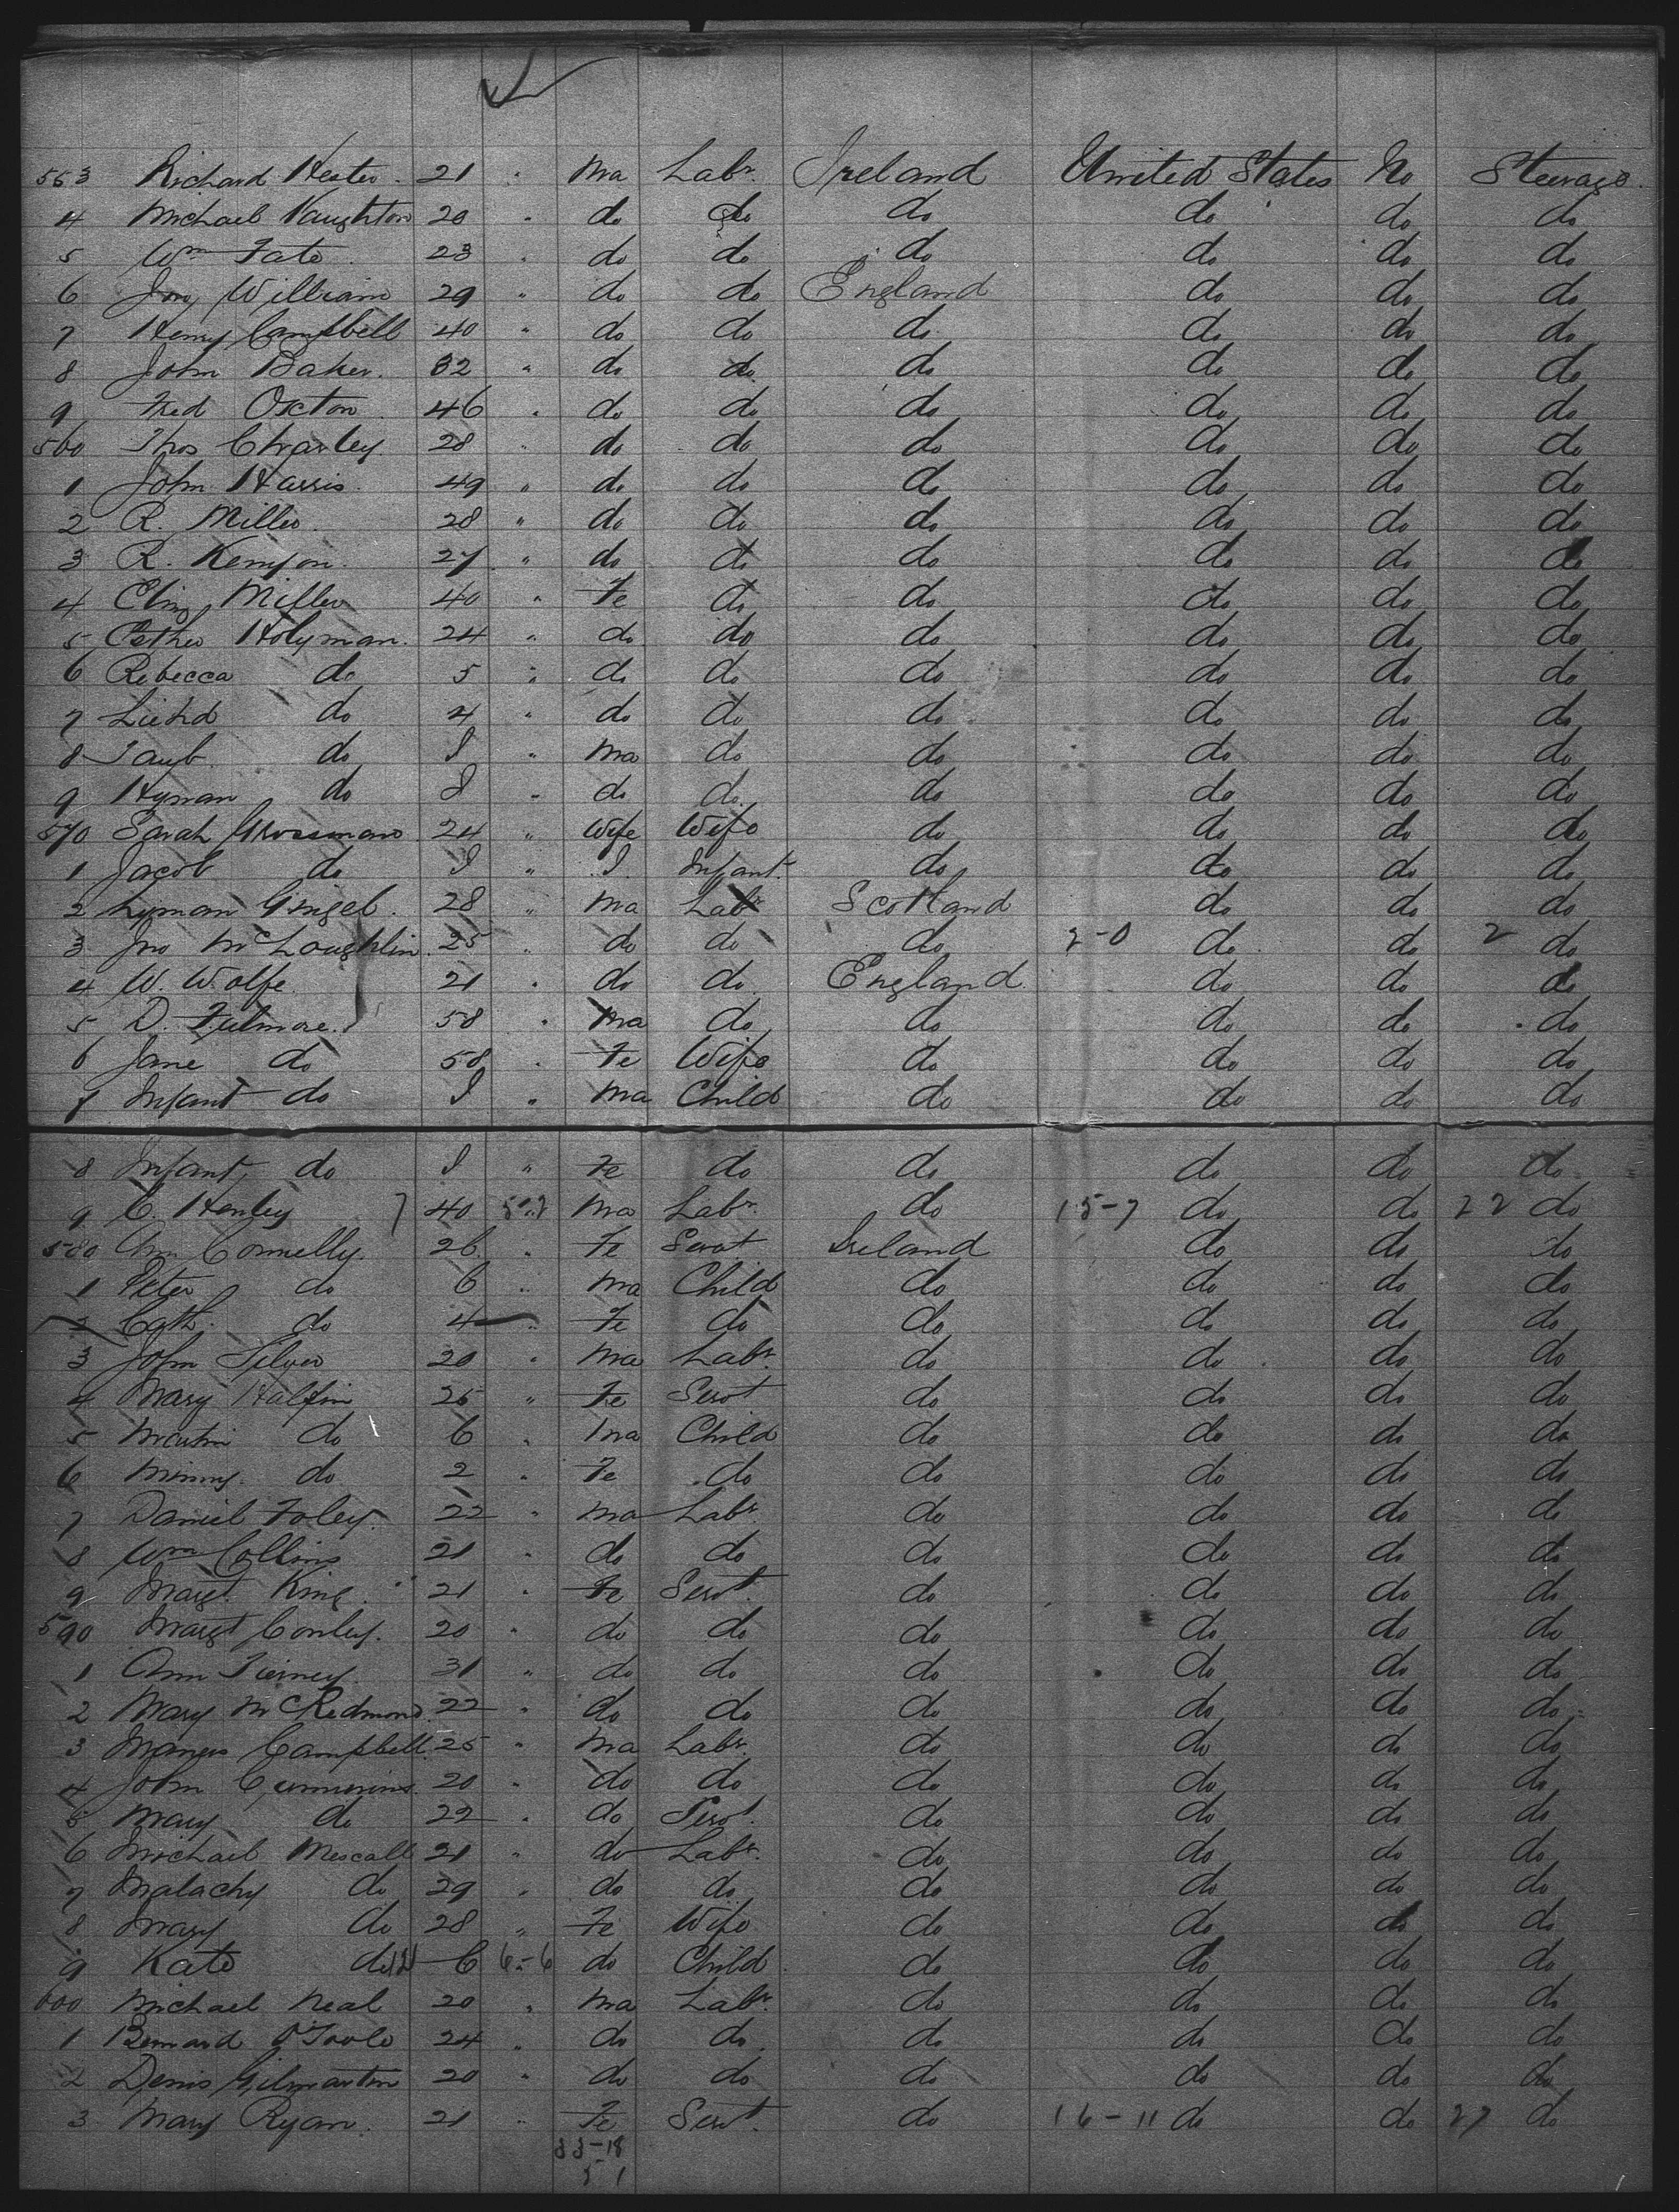 553 Richard Hester. 21 " Ma Labr. Ireland United States No Steerage.
4 Michael Naughton 20 " do do do do do do
5 Wm Tate. 23 " do do do do do do
6 Jno William 29 " do do England do do do
7 Henry Campbell 40 " do do do do do do
8 John Baker. 32 " do do do do do do
9 Fred Oxton 46 " do do do do do do
560 Thos Charley. 28 " do do do do do do
1 John Harris. 49 " do do do do do do
2 R. Miller. 28 " do do do do do do
3 R. Kenyon. 27 " do do do do do do
4 Eliz Miller 40 " Fe do do do do do
5 Esther Holyman. 24 " do do do do do do
6 Rebecca do 5 " do do do do do do
7 do 4 " do do do do do do
8 Taub. do I " Ma do do do do do
9 Hyman do I " do do. do do do do
570 Sarah Grossman 24 " Wife Wife do do do do
1 Jacob do I " I. Infant. do do do do
2 Lyman Gingel. 28 " Ma Labr Scotland do do do
3 Jno McLoughlin. 25 " do do do 2-0 do do 2 do
4 W. Wolfe. 21 " do do. England do do do
5 D. Fulmore. 58 " Ma do do do do do
6 Jane do 58 " Fe Wife do do do do
7 Infant do I " Ma Child do do do do
8 Infant do I " Fe do do do do do
9 C. Henley 7 40 Ma Labr. do 15-7 do do 22 do
580 Ann Connelly. 26 " Fe Servt Ireland do do do
1 Peter do 6 " Ma Child do do do do
2 Cath. do 4 " Fe do do do do do
3 John Silver 20 " Ma Labr. do do do do
4 Mary Halfin 25 " Fe Servt do do do do
5 Martin do 6 " Ma Child do do do do
6 Minny. do 2 " Fe do do do do do
7 Daniel Foley. 22 " Ma Labr. do do do do
8 Wm Collins 21 " do do do do do do
9 Margt. King. 21 " Fe Servt. do do do do
590 Margt Conley. 20 " do do do do do do
1 Ann Tierney. 31 " do do do do do do
2 Mary McRedmond. 22 " do do do do do do
3 Campbell. 25 " Ma Labr. do do do do
4 John Cummins. 20 " do do do do do do
5 Mary do 22 " do Servt. do do do do
6 Michael Mescall 21 " do Labr. do do do do
7 Malachy do 29 " do do do do do do
8 Mary do 28 " Fe Wife do do do do
9 Kate do 6 6-6 do Child. do do do do
600 Michael Neal 20 " Ma Labr. do do do do
1 Bernard O'Toole 24 " do do. do do do do
2 Denis Gilmartin 20 " do do do do do do
3 Mary Ryan. 21 " Fe Servt. do 16-11 do do 27 do
33-18
5 1